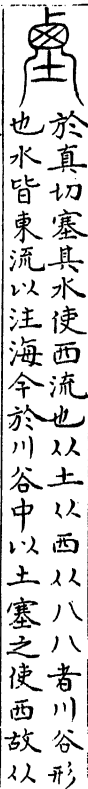 於真切塞其水使西流也从土从西从八八者川谷形
也水皆東流以注海今於川谷中以土塞之使西故从